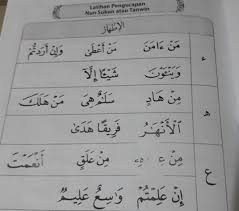 Latihan Pengucapan
Nun Sukun atau Tanwin
الإِظْهَارُ
ء مَنْ ءَامَنَ مَنْ أَعْطَى وَإِنْ أَرَدْتُمْ
وَيَنْئَوْنَ شَيْئًا إِلَّا
ه مِنْ هَادٍ سَلَٰمٌ هِيَ مَنْ هَلَكَ
الْأَنْهَٰرُ فَرِيقًا هَدَىٰ
ع مِنْ مِنْ عَلَقٍ أَنْعَمْتَ
إِنْ عَلِمْتُمْ وَاسِعٌ عَلِيمٌ